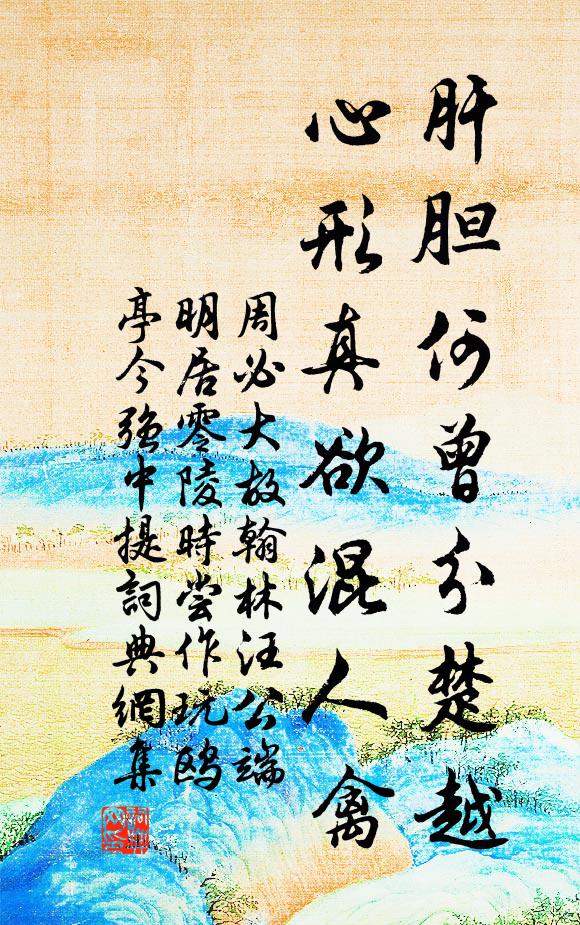 肝胆何曾分楚越
心形真欲混人禽
周必大故翰林汪公端
明居零陵時尝作玩鸥
亭今强中提詞典網集